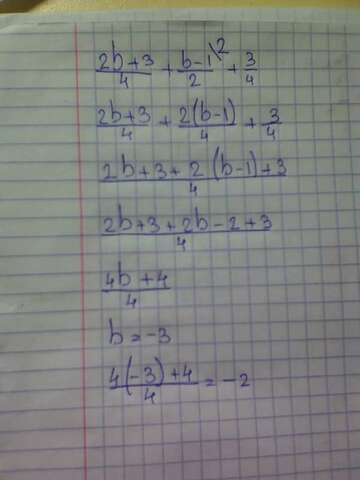 (2b+3)/4 + (b-1)/2 \2 + 3/4
(2b+3)/4 + 2(b-1)/4 + 3/4
(2b+3+2(b-1)+3)/4
(2b+3+2b-2+3)/4
(4b+4)/4
b=-3
(4(-3)+4)/4 = -2